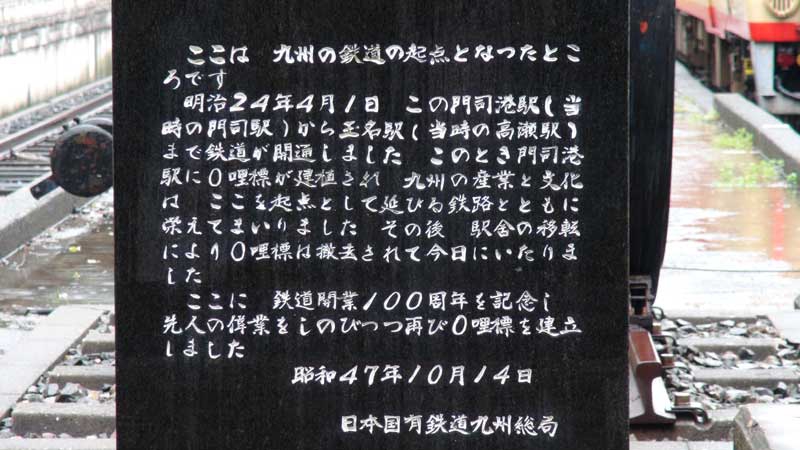 ここは 九州の鉄道の起点となつたとこ
ろです
明治24年4月1日 この門司港駅(当
時の門司駅)から玉名駅(当時の高瀬駅)
まで鉄道が開通しました このとき門司港
駅に0哩標が建植され 九州の産業と文化
は ここを起点として延びる鉄路とともに
栄えてまいりました その後 駅舎の移転
により0哩標は撤去されて今日にいたりま
した
ここに 鉄道開業100周年を記念し
先人の偉業をしのびつつ再び0哩標を建立
しました
昭和47年10月14日
日本国有鉄道九州総局